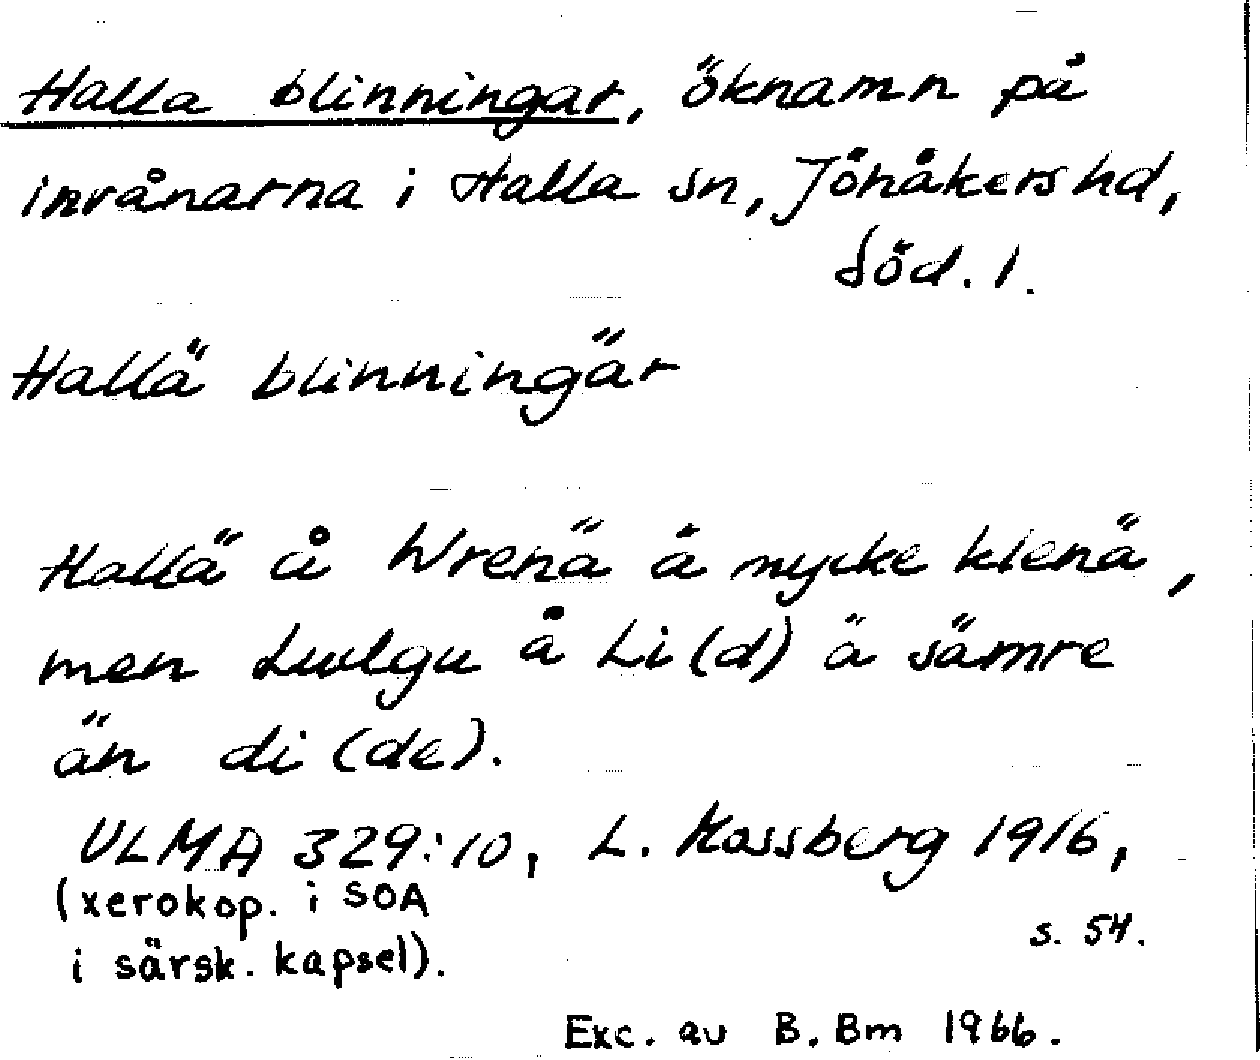 Halla blinningar, öknamn på
invånarna i Halla sn, Jönåkers hd,
Söd. l.
Hallä blinningär
Hallä å Wrenä ä mycke klenä,
men Lwlgu å Li(d) ä sämre
än di (de).
ULMA 329:10, L. Mossberg 1916,
(xerokop. i SOA
i särsk. kapsel).
s. 54.
Exc. av B. Bm 1966.